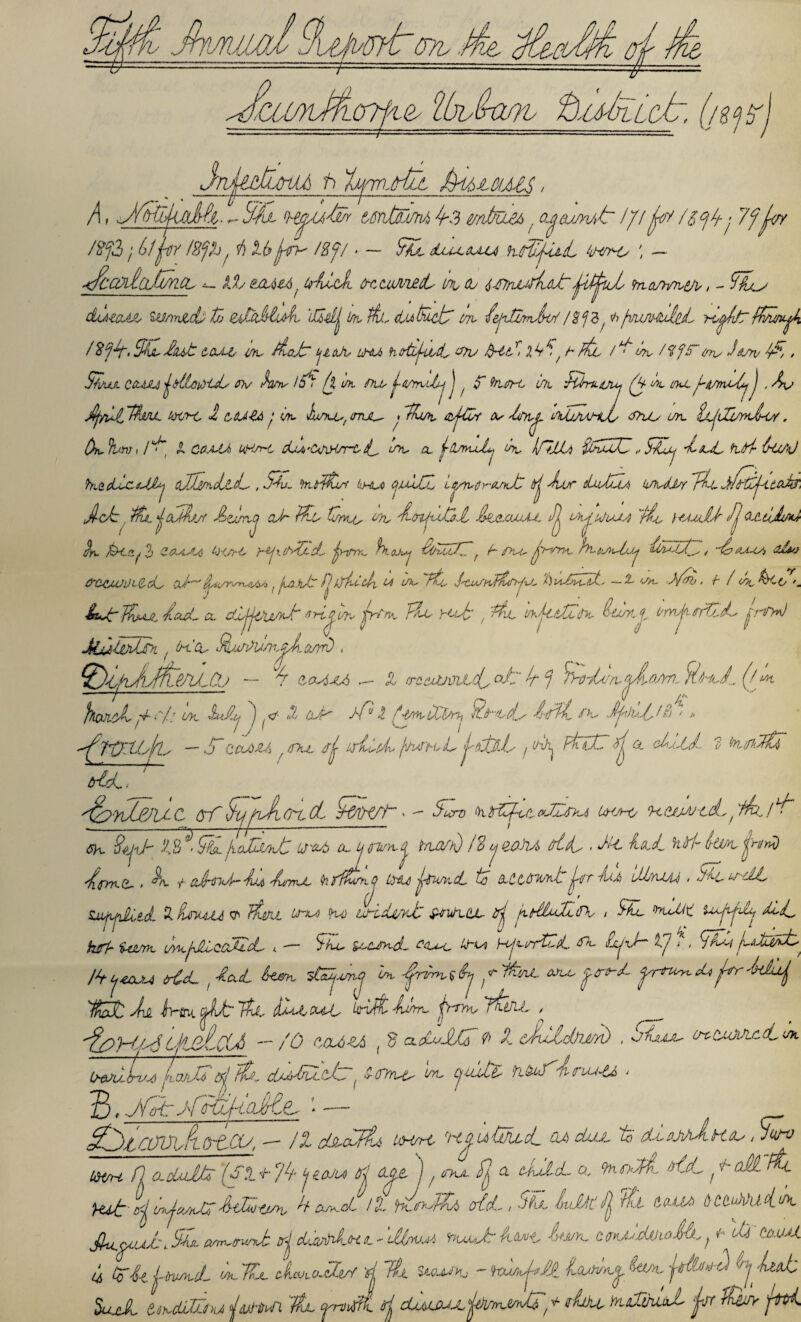 Fifth Annual Report on the Health of the
Scunthorpe Urban District. (1895)
Infectious & Zymotic Diseases,
A, Notifiable. - The register contains 43 entries, against 171 for 1894; 79 for
1893; 61 for 1892, & 26 for 1891. — The diseases notified were :—
Scarlatina — 22 cases, which occurred in a somewhat fitful manner, - This
disease seemed to establish itself in the district in September 1893, & prevailed right through
1894. The last case in that year was notified on Dec. 24th, & the 1st in 1895 on Jany 4th,
These cases followed on Jany 15th (2 in one family), 5 more in February (4 in one family). In
April there were 2 cases; in June, one, then after a long interval one in September.
On Novr. 1st, 2 cases were discovered in a family in Wells Street. They had not been
medically attended. The mother was quite ignorant of her duties under the Notification
Act, the father being at the time in hospital because of injuries the result of accident
In Decr, 3 cases were reported from Mary Street, & one from Manley Street, cases also
occurred at Frodingham, part of which is in the Scunthorpe District. — 2 in Novr. & 1 in Decr.
but these had a different origin from the rest, the infection being imported from
Messingham, via Frodingham.
Diphtheria — 4 cases — 2 occurred at 49 Frodingham Road (1 in
March & 1 in July), & 2 at No 2 Road both on April 18th.
Croup — 5 cases, one of which proved fatal, viz that of a child 2 months
old.
Enteric or Typhoid Fever. - Two notifications were received, the 1st
on Sept 28. The patient was a young man 18 years old. He had not been from
home. In & about his home nothing was found to account for his illness. The well
supplied 2 houses & there was no evident source of pollution. The milk supply did
not seem implicated. — The second case was reported on Sept 27th. This patient
14 years old, had been staying in Grimsby, & there are good grounds for belief
that he brought the disease with him from there.
Erysipelas — 10 cases, 8 adults & 2 children. These occurred in
various parts of the district, some in quite new houses.
B. Not Notifiable. —
Diarrhoea, — 12 deaths were registered as due to diarrhoea, Two
were of adults (52 & 74 years of age), one of a child a month old, & all the
rest of infants between 4 and 12 months old. The bulk of the cases occurred in
August. The amount of diarrhoea - illness must have been considerable, & its cause
is to be found in the character of the season - rainfall having been followed by heat
Such conditions favour the growth of disease ferments, & where material for their food